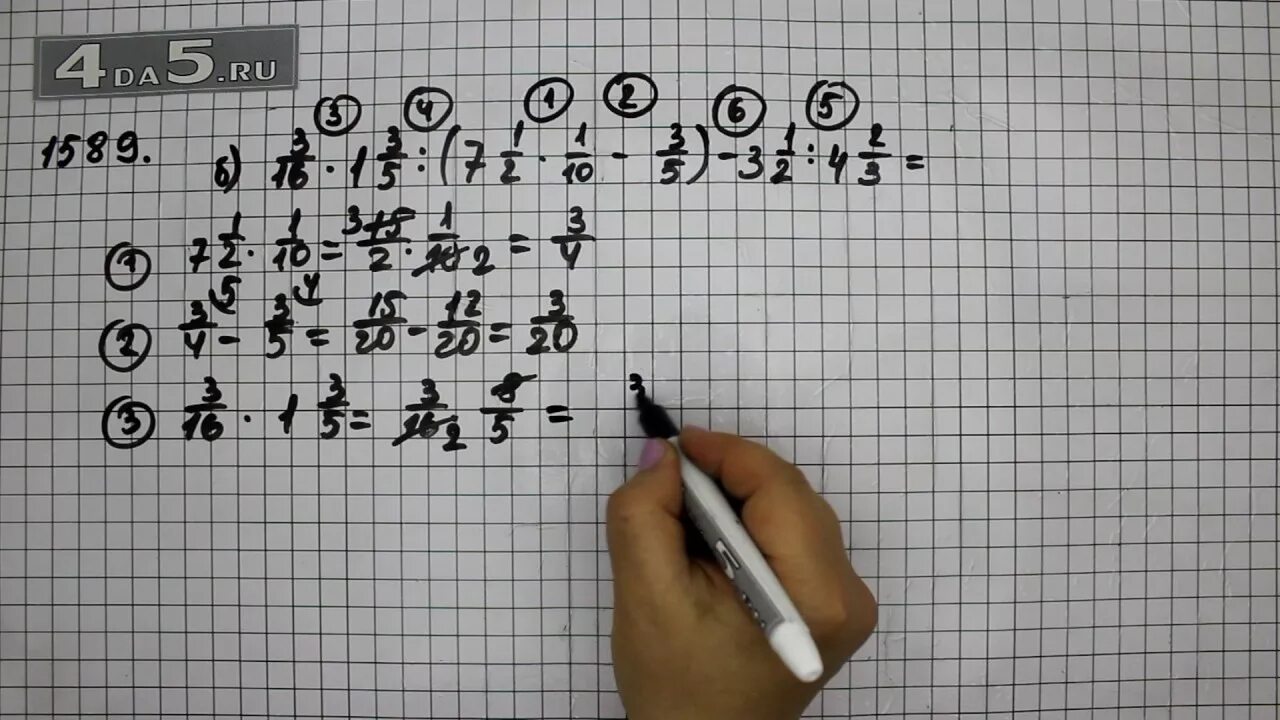 4DA5.RU
③ ④ ① ② ⑥ ⑤
1589. б) 3/16 · 1 3/5 : (7 1/2 · 1/10 - 3/5) - 3 1/2 : 4 2/3 =
① 7 1/2 · 1/10 = 3 15/2 · 1/10 2 = 3/4
② 3/4 5 - 3/5 4 = 15/20 - 12/20 = 3/20
③ 3/16 · 1 3/5 = 3/16 2 8/5 = 3